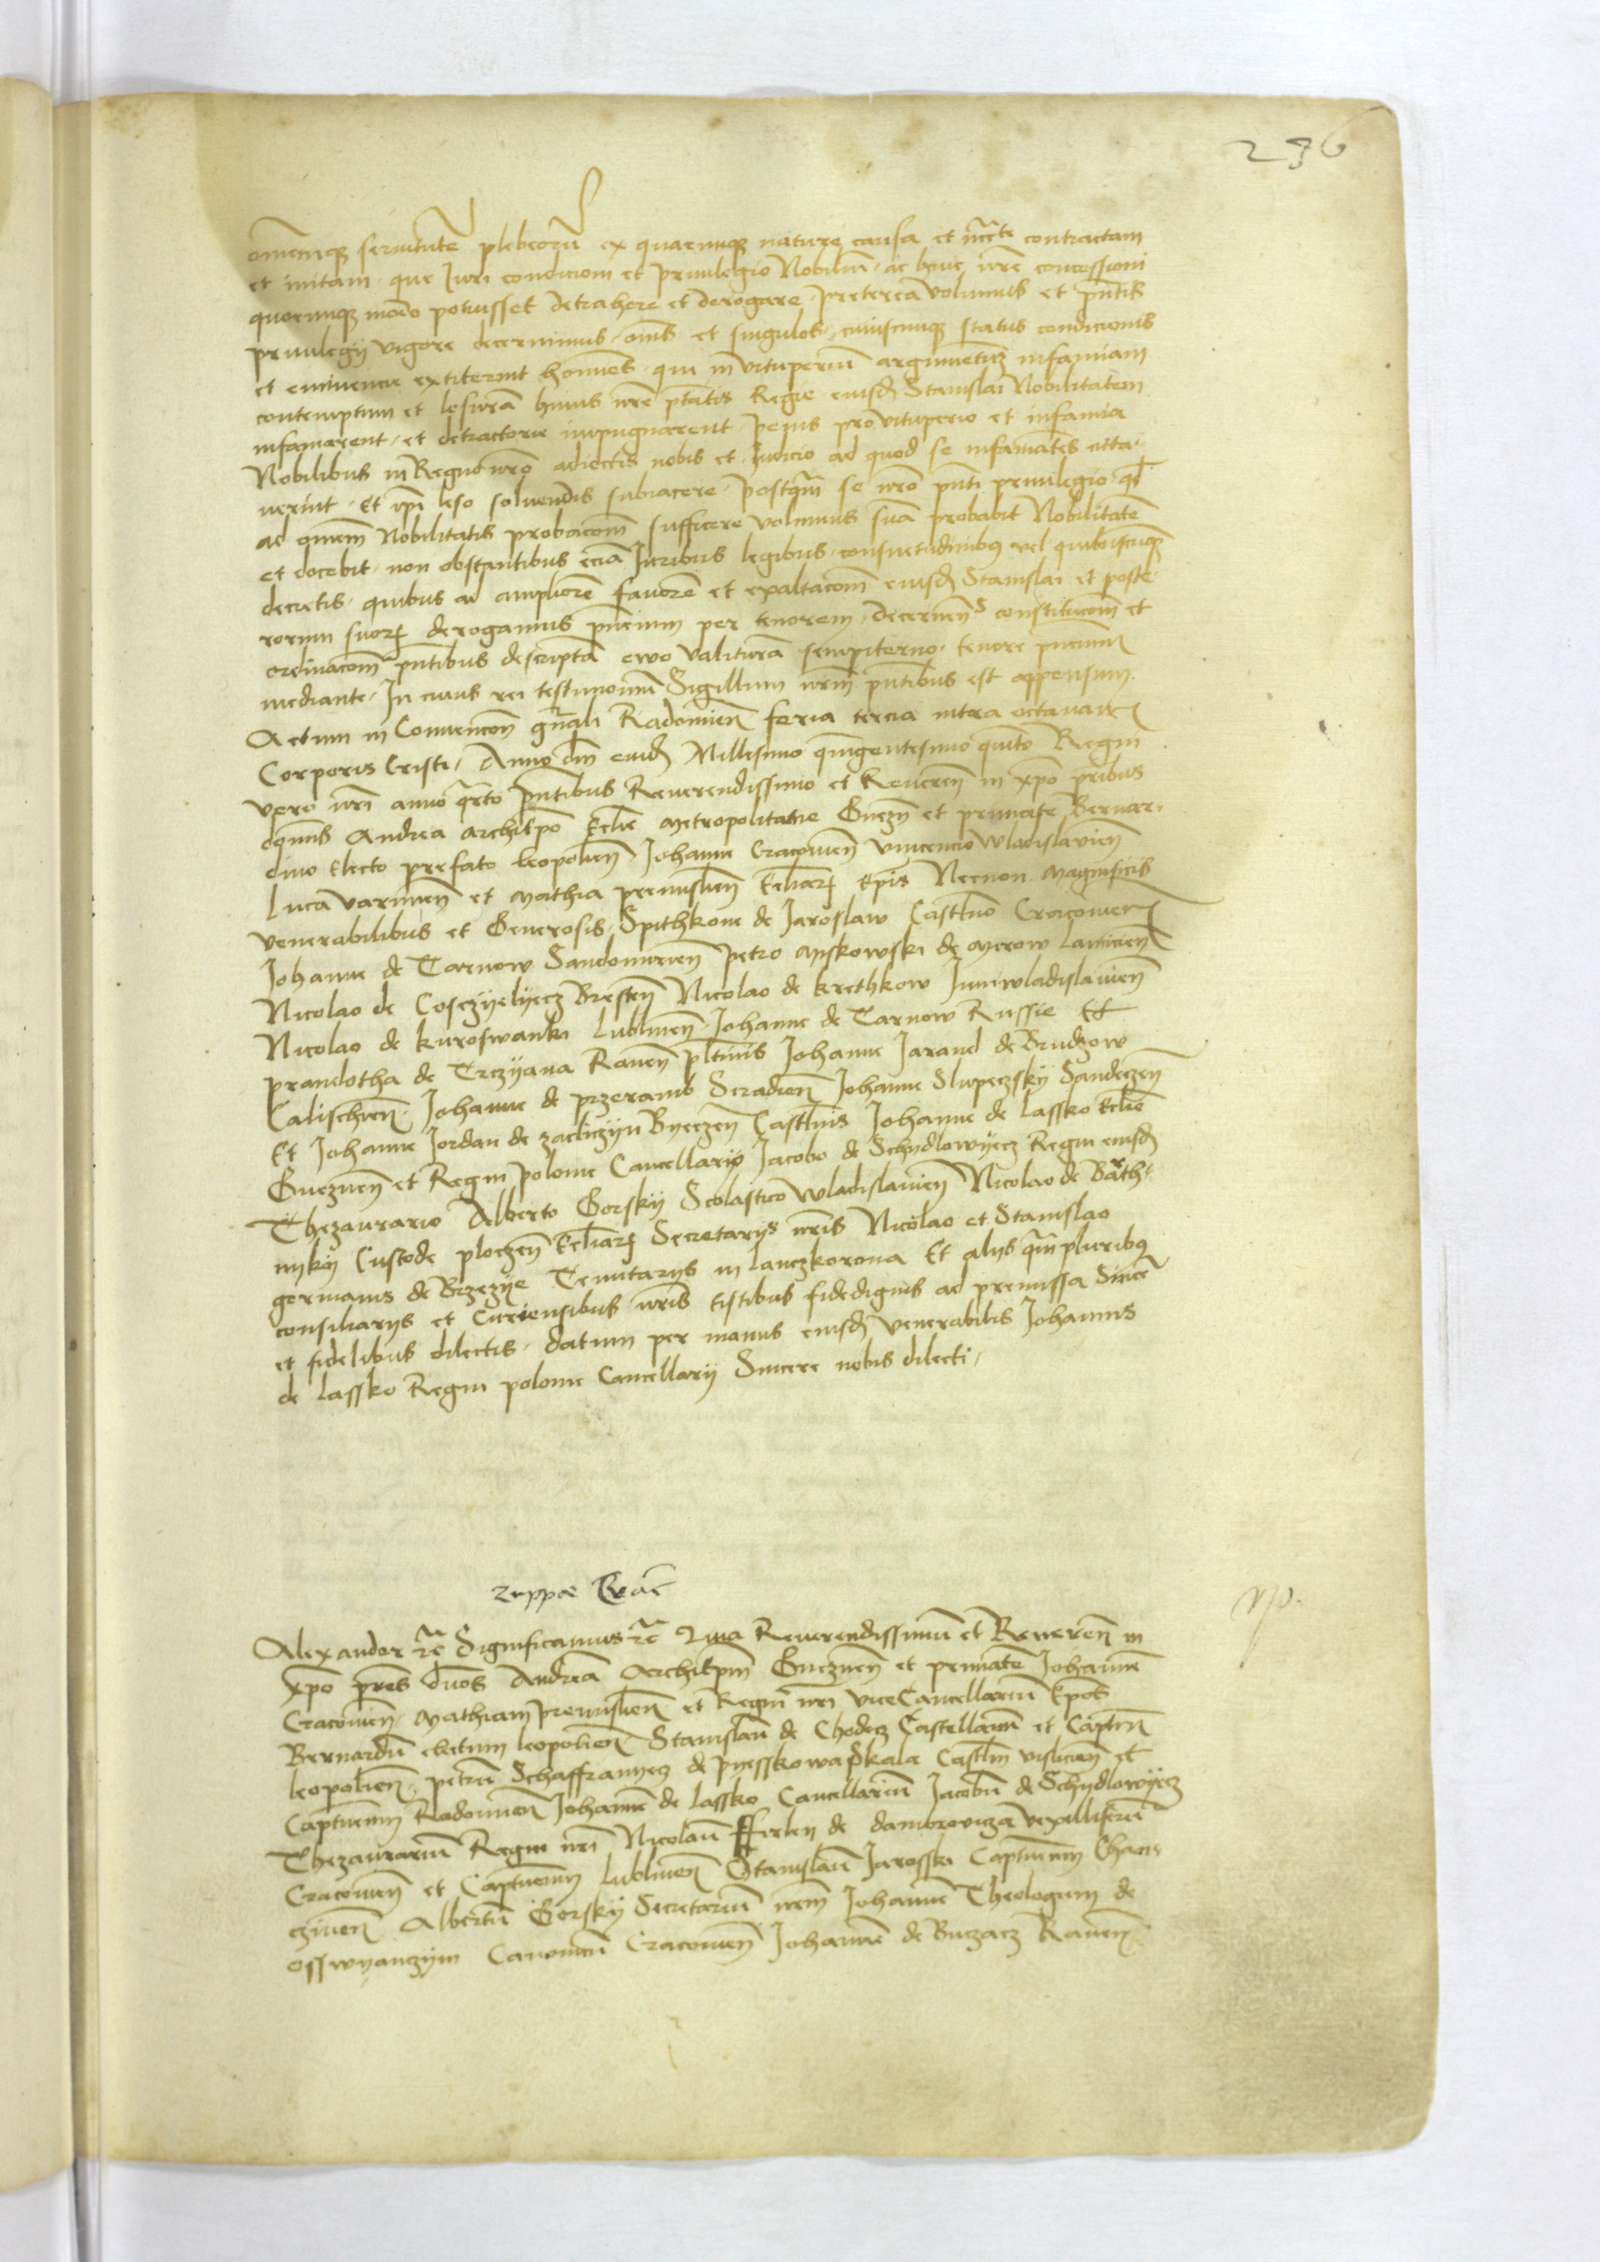 236
omnemque servitutem plebeorum ex quacunque nature causa et contractam
et initam. que Iuri condicioni et privilegio Nobilium. ac huic nre concessioni
quocunque modo potuisset detrahere et derogare. Preterea volumus et pntis
privilegij vigore decernimus. oms et singulos. cuiuscunque status condicionis
et eminencie extiterint homines. qui in vituperium infamiam
contemptum et lesuram huius nre ptatis Regie eiusd Stanislai Nobilitatem
infamarent. et detractorie impugnarent. penis pro vituperio et infamia
Nobilibus in Regno nro adiectis nobis et Iudicio ad quod se infamates cita-
verint. Et ipi leso solvendis subiacere. Postqm se nro pnti privilegio qd
ad omnem Nobilitatis probacom sufficere volumus sua probabit Nobilitate
et docebit. non obstantibus ecia Iuribus legibus. consuetudinibus vel quibuscunque
decretis. quibus ad ampliore favore et exaltacom eiusd Stanislai et poste
rorum suor derogamus pncium per tenorem. decernens constitucom et
ordinacom pntibus descripta evo valitura sempiterno. tenore pncium
mediante. In cuius rei testimonium Sigillum nrm pntibus est appensum.
Actum in Convencone gnali Radomien feria tercia intra octavam
Corporis Cristi. Anno dni eiusd Millesimo quingentesimo quinto Regni
vero nri anno qrto pntibus Reverendissimo et Reveren in xpo pribus
dominis Andrea archiepo Eclie Metropolitane Gnezn et primate Bernar-
dino Electo prefato leopolien Johanne Cracovien Vincencio Wladislavien
Luca Varmien et Mathia premislien Ecliar Epis Necnon Magnificis
venerabilibus et Generosis. Spithkone de Jaroslaw Castlno Cracovien
Johanne de Tarnow Sandomirien Petro Myskowski de Mirow Lancicien
Nicolao de Cosczyelyecz Bresten Nicolao de Krethkow Juniwladislavien
Nicolao de Kuroswanki Lublinen. Johanne de Tarnow Russie Et
Prandotha de Trczyana Raven pltinis Johanne Jarand de Brudzow
Calischien. Johanne de Przeramb Siradien Johanne Slupeczsky Sandeczen
Et Johanne Jordan de zacliczyn Byeczen Castlnis Johanne de Lassko Eclie
Gneznen et Regni Polonie Cancellario Jacobo de Schydlowyecz Regni eiusd
Thezaurario Alberto Gorsky Scolastico Wladislavien Nicolao de Barth-
nyky Custode ploczen Ecliar Secretarys nris Nicolao et Stanislao
germanis de Brzezye Tenutarys in lanczkorona Et alys qmpluribus
consiliarys et Curiensibus nris testibus fidedignis ad premissa Since
et fidelibus dilectis. datum per manus eiusd venerabilis Johannis
de Lassko Regni polonie Cancellarij Sincere nobis dilecti.
zuppae Crac
Alexander rc Significamus rc Quia Reverendissimu et Reveren in
xpo pres dnos Andrea Archiepm Gneznen et primate Johanne
Cracovien. Mathiam Premislien et Regni nri vice Cancellariu Epos
Bernardu electum leopolien Stanislau de Chodecz Castellanu et Captm
leopolien. petru Schaffranyecz de Pyesskowaskala Castlm vislicien et
Captneum Radomien Johanne de Lassko Cancellarium Jacobu de Schydlowyecz
Thezaurarium Regni nri Nicolau fferley de dambrovicza vexilliferu
Cracovien et Captneum Lublinen Stanislau Jarosski Captneum Chan-
czinen Albertu Gorsky Secretarium nrm Johanne Theologum de
Osswyanczym Canonicu Cracovien Johanne de Buczacz Raven